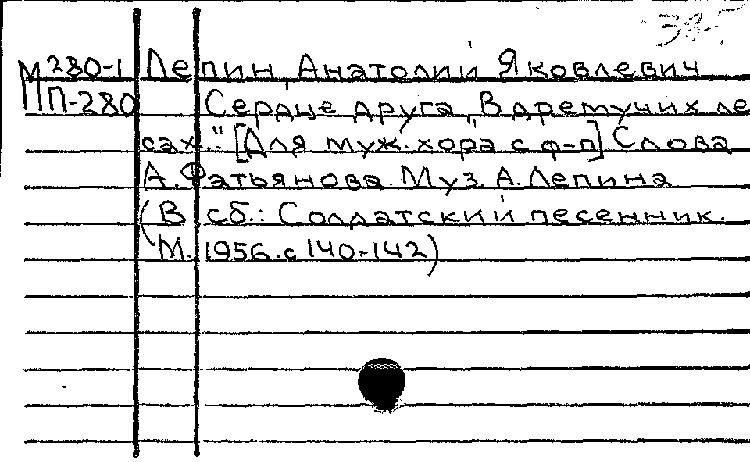 М280-1 Лепин, Анатолий Яковлевич
ПП-280 Сердце друга „В дремучих ле
сах." [Для муж. хора с ф-п] Слова
А. Фатьянова Муз. А. Лепина
(В сб.: Солдатский песенник.
М. 1956. с 140-142)